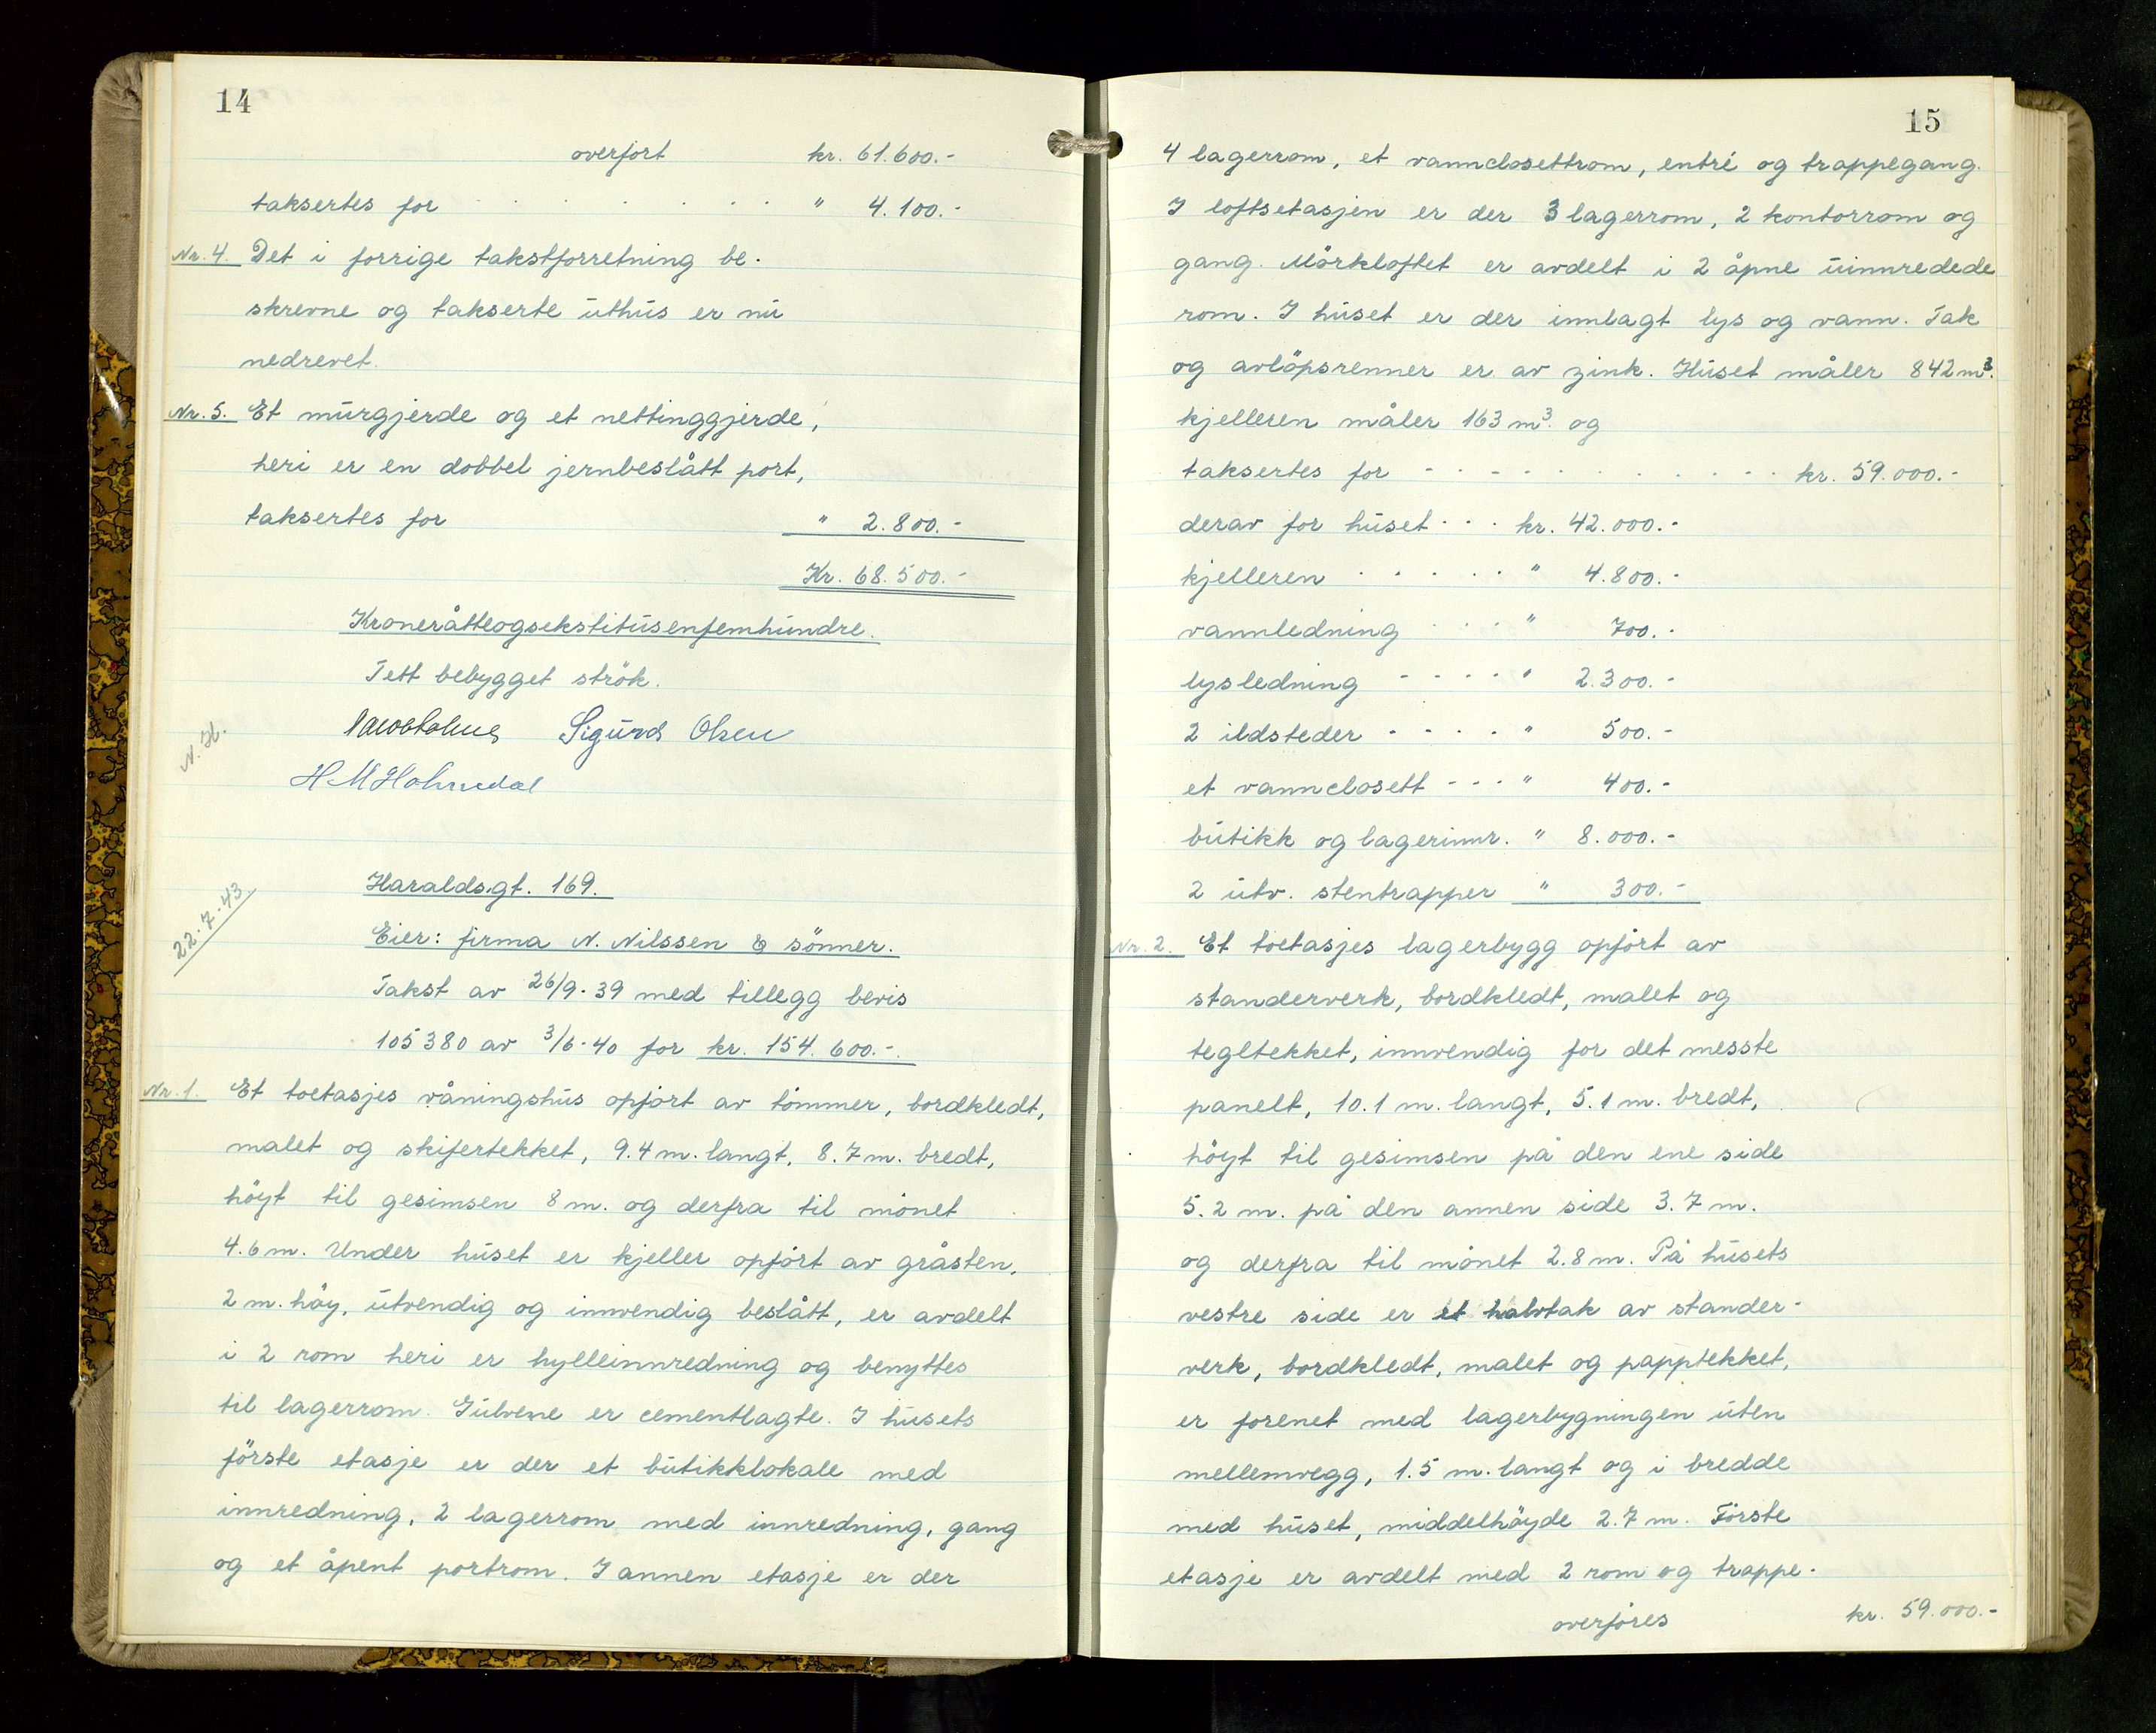 14
overført kr. 61.600.-
taksertes for . . . . . . . . . " 4.100.-
Nr. 4. Det i forrige takstforretning be-
skrevne og takserte uthus er nu
nedrevet.
Nr. 5. Et murgjerde og et nettinggjerde,
heri er en dobbel jernbeslått port,
taksertes for " 2.800.-
Kr. 68.500.-
Kroneråtteogsekstitusenfemhundre.
Tett bebygget strök.
Sigurd Olsen
N. H.
22.7.43
Haraldsgt. 169.
Eier: firma N. Nilssen & sönner.
Takst av 26/9-39 med tillegg bevis
105380 av 3/6-40 for kr. 154.600.-.
Nr. 1. Et toetasjes våningshus opfört av tömmer, bordkledt,
malet og skifertekket, 9.4 m. langt, 8.7 m. bredt,
höyt til gesimsen 8 m. og derfra til mönet
4.6 m. Under huset er kjeller opfört av gråsten,
2 m. höy, utvendig og innvendig beslått, er avdelt
i 2 rom heri er hylleinnredning og benyttes
til lagerrom. Gulvene er cementlagte. I husets
förste etasje er der et butikklokale med
innredning, 2 lagerrom med innredning, gang
og et åpent portrom. I annen etasje er der
15
4 lagerrom, et vannclosettrom, entré og trappegang.
I loftsetasjen er der 3 lagerrom, 2 kontorrom og
gang. Mörkloftet er avdelt i 2 åpne uinnredede
rom. I huset er der innlagt lys og vann. Tak
og avlöpsrenner er av zink. Huset måler 842 m³.
kjelleren måler 163 m³. og
taksertes for - - - - . . . . . . . . kr. 59.000.-
derav for huset . . . kr. 42.000.-
kjelleren . . . . . " 4.800.-
vannledning . . . " 700.-
lysledning - - - - " 2.300.-
2 ildsteder - - - - " 500.-
et vannclosett - - - " 400.-
butikk og lagerinnr. " 8.000.-
2 utv. stentrapper " 300.-
Nr. 2. Et toetasjes lagerbygg opfört av
standerverk, bordkledt, malet og
tegltekket, innvendig for det messte
panelt, 10.1 m. langt, 5.1 m. bredt,
höyt til gesimsen på den ene side
5.2 m. på den annen side 3.7 m.
og derfra til mönet 2.8 m. På husets
vestre side er et halvtak av stander-
verk, bordkledt, malet og papptekket,
er forenet med lagerbygningen uten
mellemvegg, 1.5 m. langt og i bredde
med huset, middelhöyde 2.7 m. Förste
etasje er avdelt med 2 rom og trappe-
overföres kr. 59.000.-